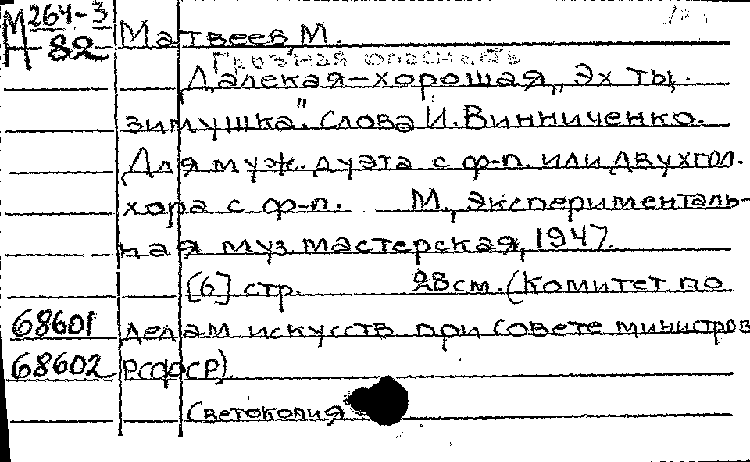 М 264-3
Н-82
Матвеев М.
Грозная опасность
Далекая-хорошая „Эх ты,
зимушка". Слова И. Винниченко.
Для муж. дуэта с ф-п. или двухгол.
хора с ф-п. М., Эксперименталь-
ная муз. мастерская, 1947.
[6] стр. 28 см. (Комитет по
68601 делам искусств при Совете министров
68602 РСФСР)
Светокопия